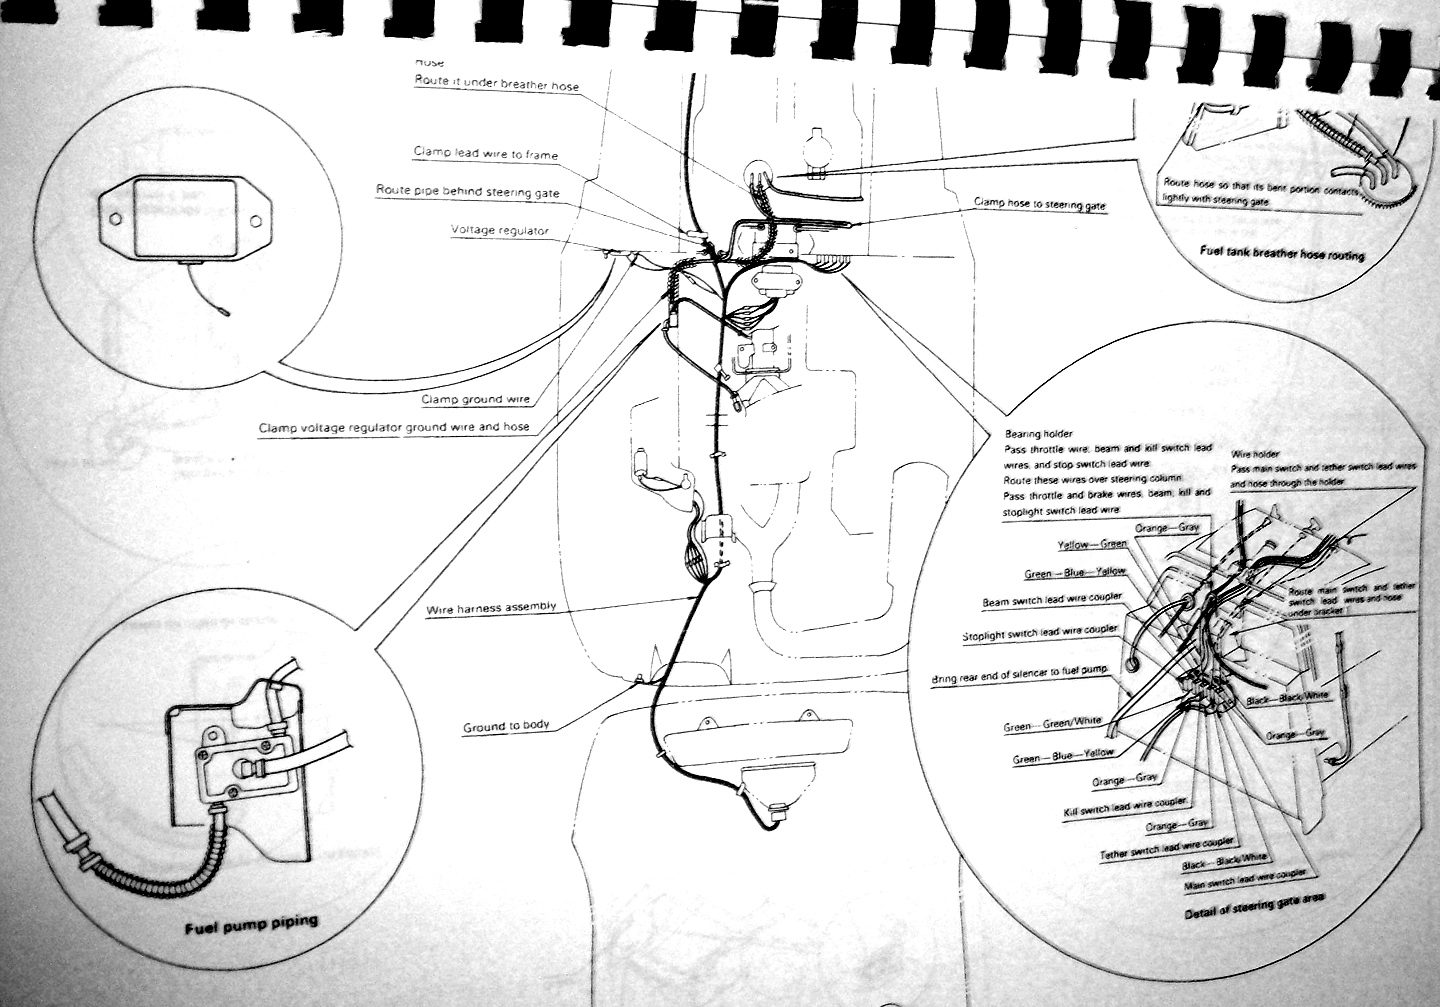 Hose
Route it under breather hose
Clamp lead wire to frame
Route pipe behind steering gate
Voltage regulator
Clamp hose to steering gate
Route hose so that its bent portion contacts
lightly with steering gate
Fuel tank breather hose routing
Clamp ground wire
Clamp voltage regulator ground wire and hose
Wire harness assembly
Ground to body
Fuel pump piping
Bearing holder
Pass throttle wire, beam and kill switch lead
wires, and stop switch lead wire.
Route these wires over steering column.
Pass throttle and brake wires, beam, kill and
stoplight switch lead wire
Wire holder
Pass main switch and tether switch lead wires
and hose through the holder.
Orange—Gray
Yellow—Green
Green—Blue—Yellow
Beam switch lead wire coupler
Stoplight switch lead wire coupler
Bring rear end of silencer to fuel pump.
Route main switch and tether
switch lead wires and hose
under bracket
Black—Black/White
Orange—Gray
Green—Green/White
Green—Blue—Yellow
Orange—Gray
Kill switch lead wire coupler
Orange—Gray
Tether switch lead wire coupler
Black—Black/White
Main switch lead wire coupler
Detail of steering gate area